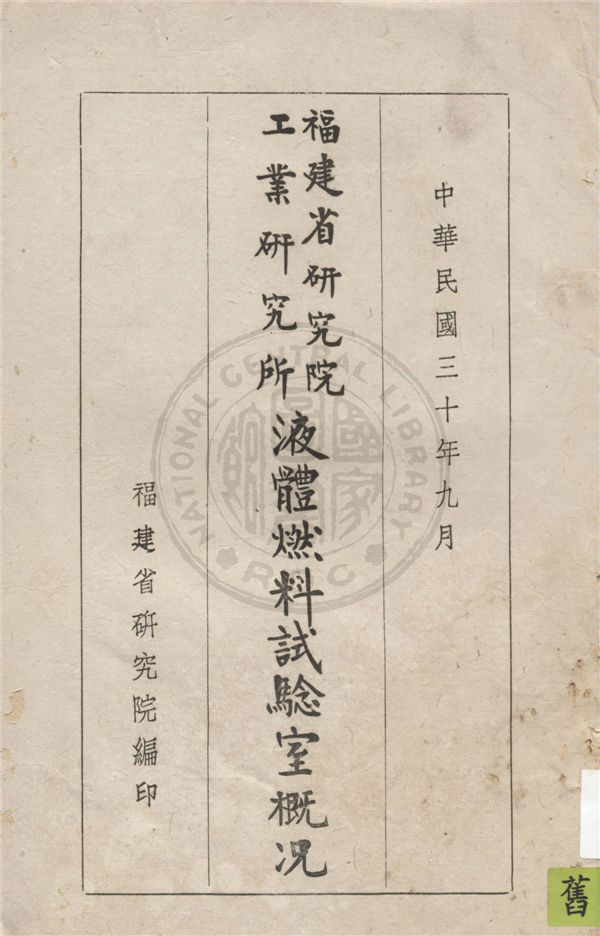 中華民國三十年九月
福建省研究院
工業研究所
液體燃料試驗室概況
福建省研究院編印
NATIONAL CENTRAL LIBRARY
R.O.C
國家圖書館
舊